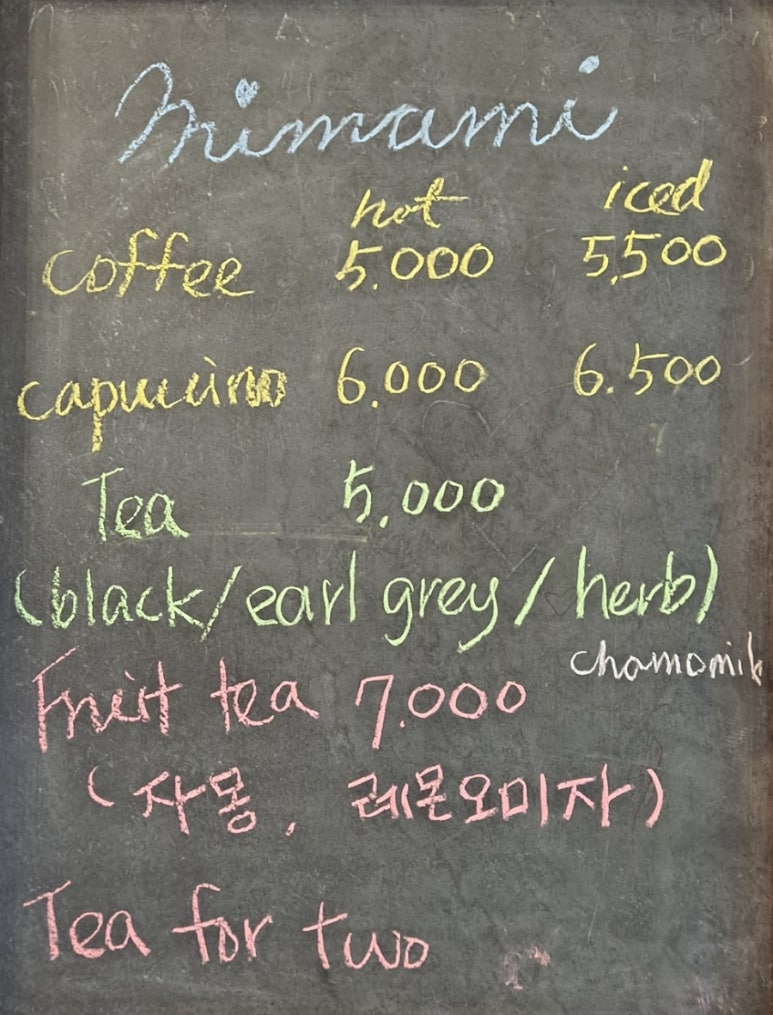 mimami
hot iced
coffee 5.000 5,500
capuccino 6.000 6.500
Tea 5,000
(black/earl grey/herb)
chamomile
Fruit tea 7.000
(자몽, 레몬오미자)
Tea for two